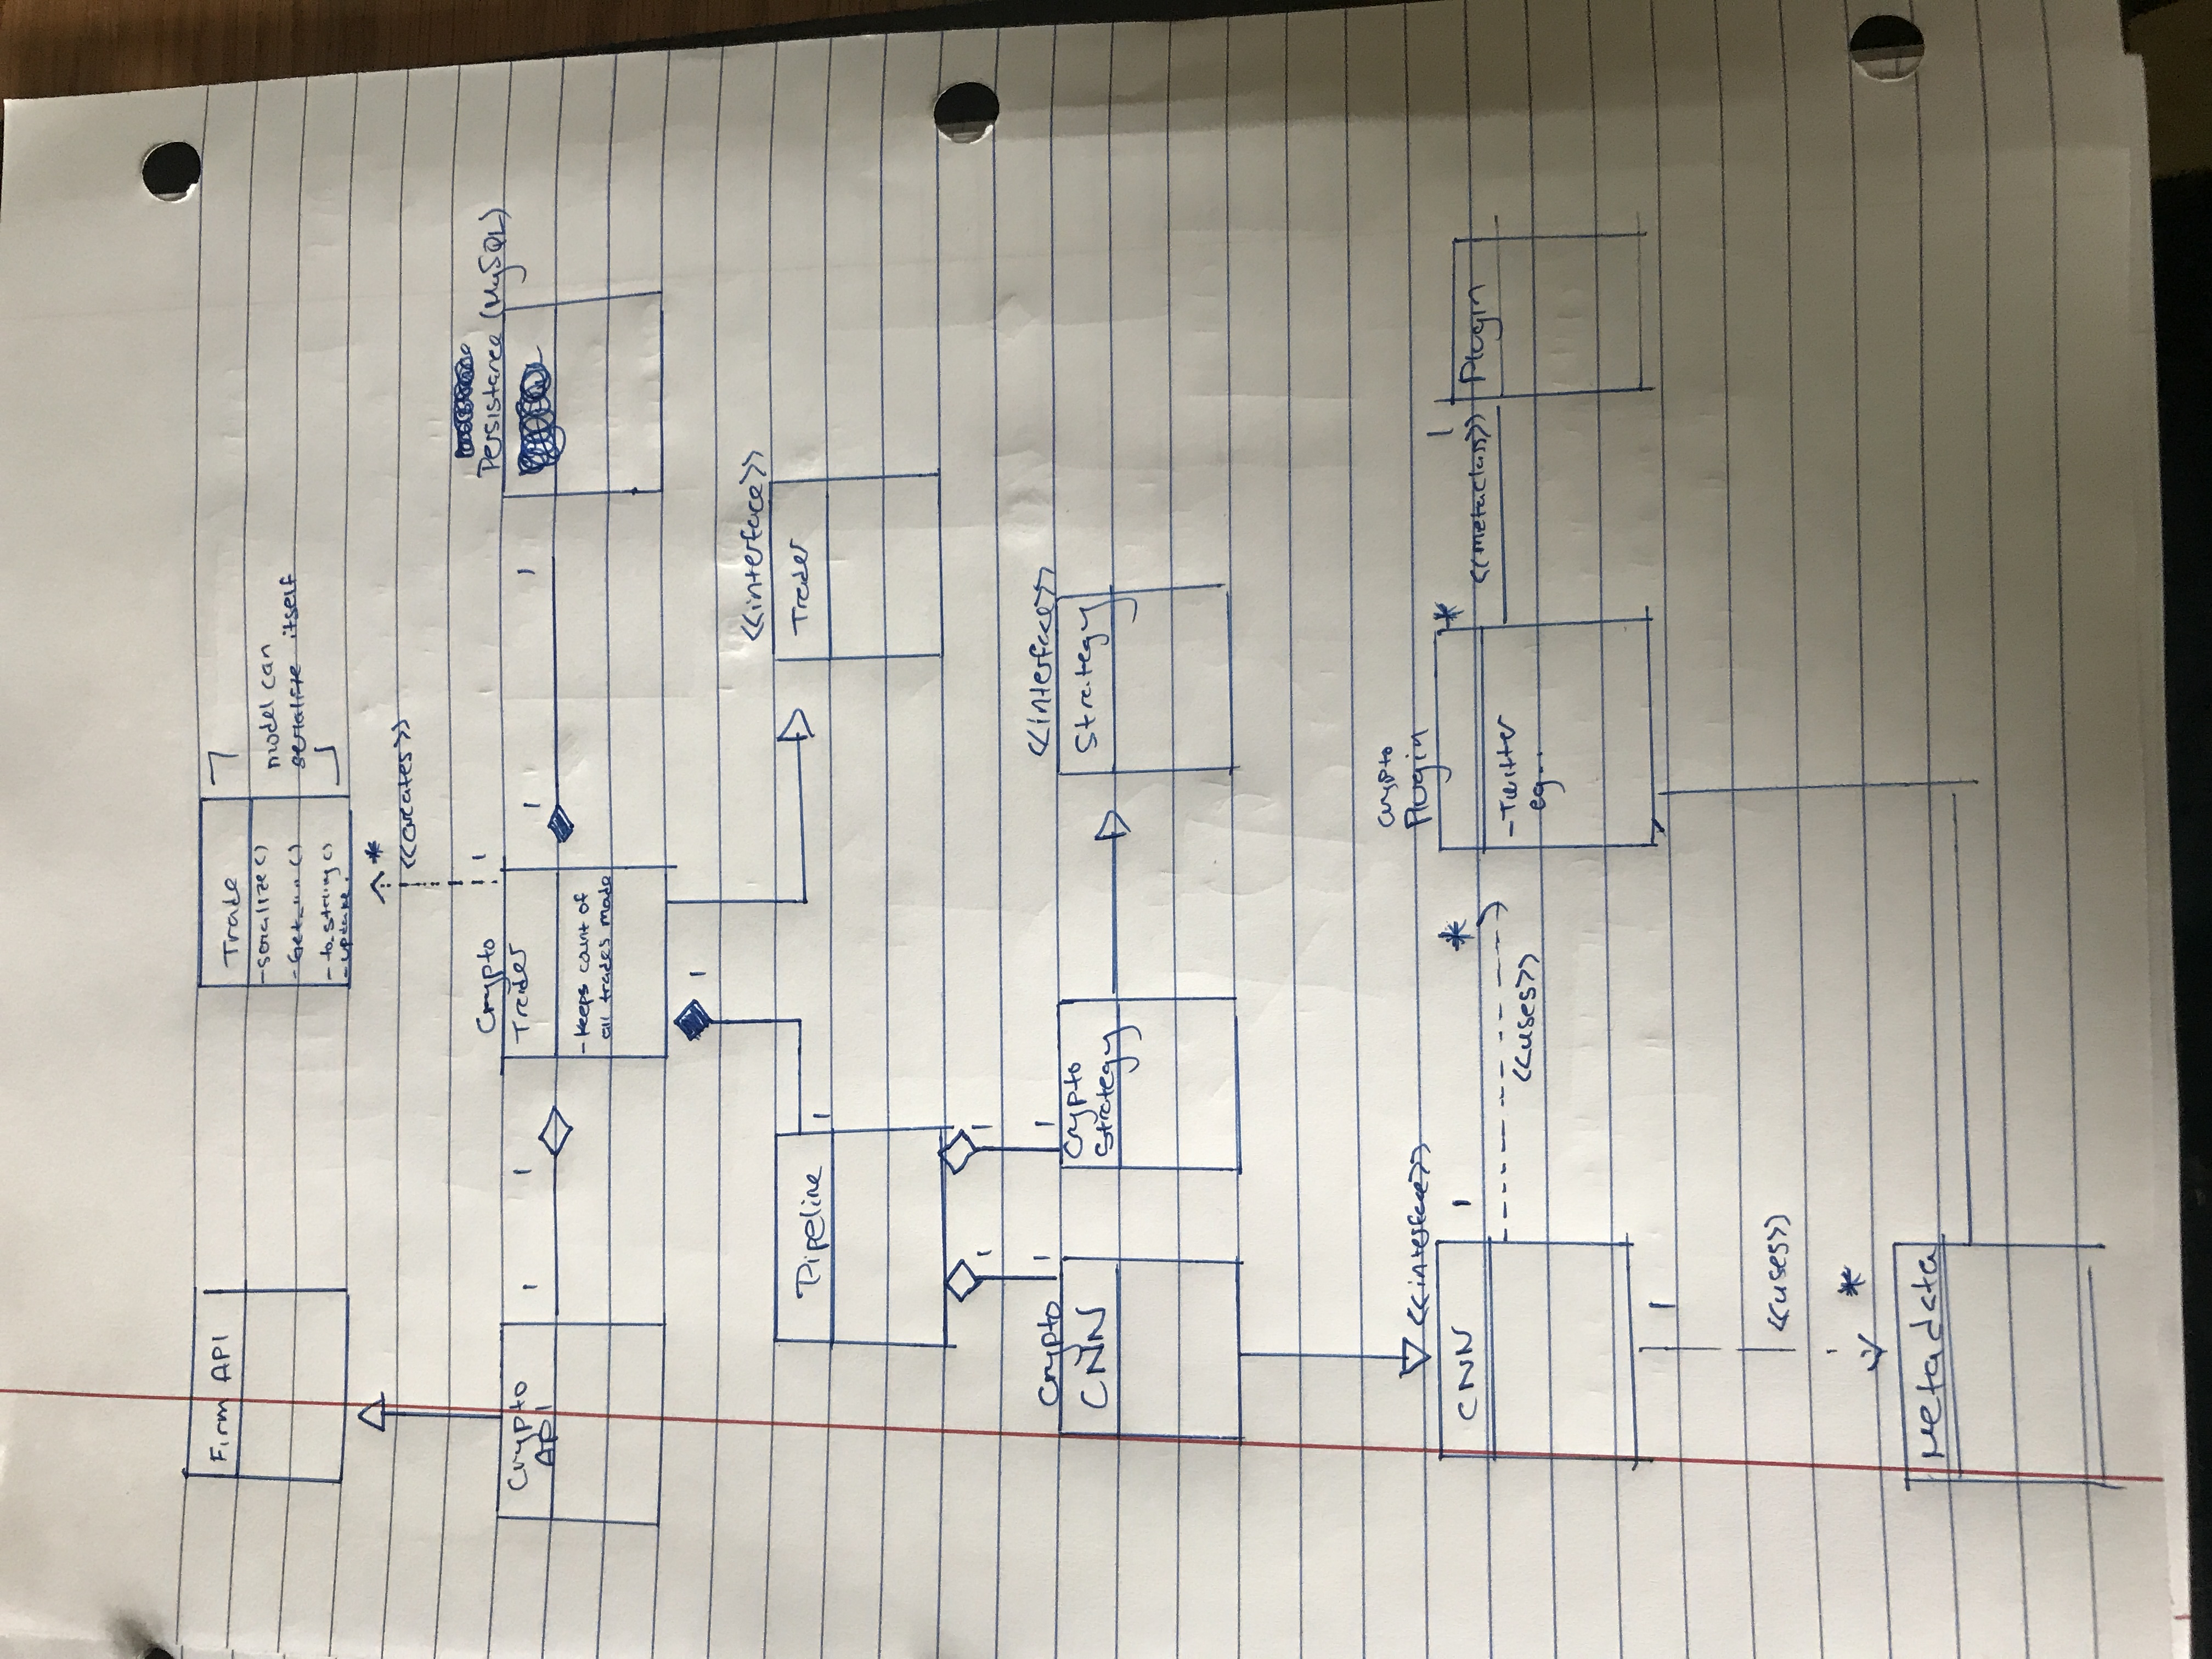 Firm API
Trade
-seralize()
-Get_...()
-to_string()
-update.
model can
serialize itself
*
<<creates>>
1
Crypto
API
1
1
Crypto
Trader
-keeps count of
all trades made
1
1
Persistance (MySQL)
1
Pipeline
1
<<interface>>
Trader
1
1
1
1
Crypto
CNN
Crypto
Strategy
<<interface>>
Strategy
<<interface>>
CNN
1
*
<<uses>>
Crypto
Plugin
-Twitter
eg...
*
1
<<metaclass>>
Plugin
1
<<uses>>
*
Metadata